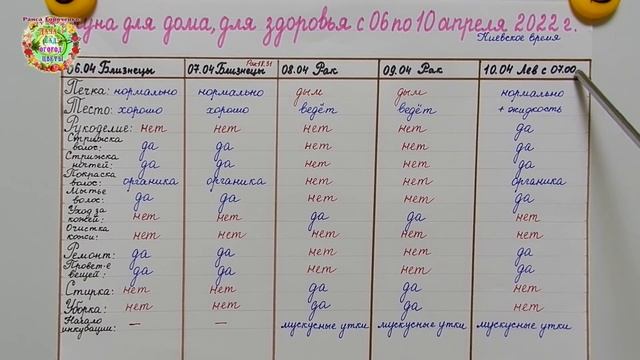 Раиса Горяченко
ДАЧА
САД
ОГОРОД
ЦВЕТЫ
Луна для дома, для здоровья с 06 по 10 апреля 2022 г.
Киевское время
06.04 Близнецы 07.04 Близнецы Рак 18.31 08.04 Рак 09.04 Рак 10.04 Лев с 07.00
Печка: нормально нормально дым дым нормально
Тесто: хорошо хорошо ведёт ведёт + жидкость
Рукоделие: нет нет нет нет да
Стрижка волос: да да нет нет да
Стрижка ногтей: да да нет нет да
Покраска волос: органика органика нет нет органика
Мытьё волос: да да нет нет да
Уход за кожей: нет нет да да нет
Очистка кожи: нет нет нет нет нет
Ремонт: да да нет нет да
Провет-е вещей: да да нет нет да
Стирка: нет нет да да нет
Уборка: нет нет да да нет
Начало инкубации: – – мускусные утки мускусные утки мускусные утки